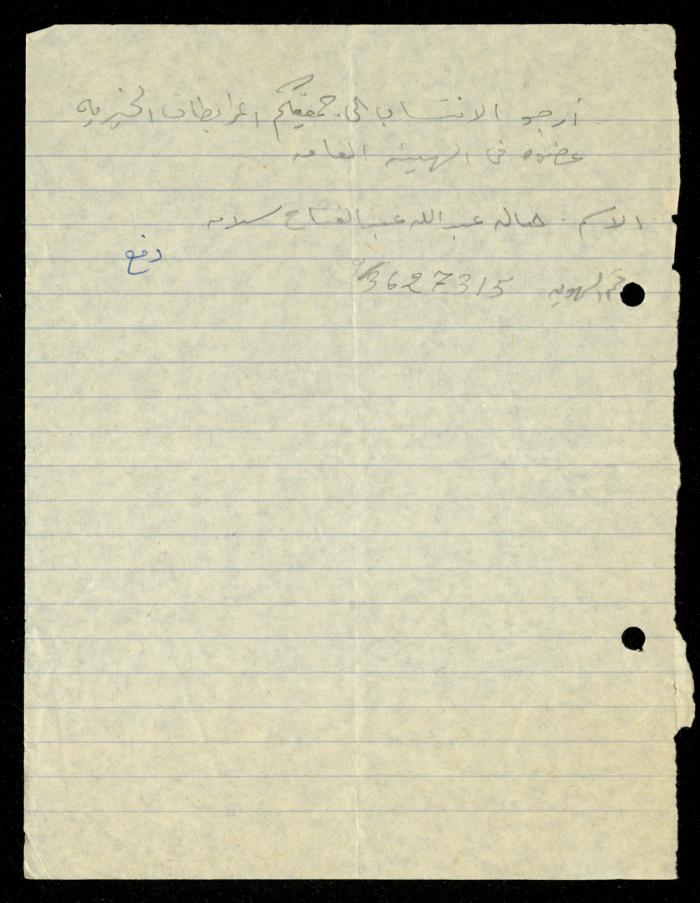 أرجو الانتساب الى جمعيتكم المرابطات الخيريه
عضوه في الهيئه العامه
الاسم. هاله عبدالله عبدالفتاح سلامه
دفع
رقم الهويه 9/3627315